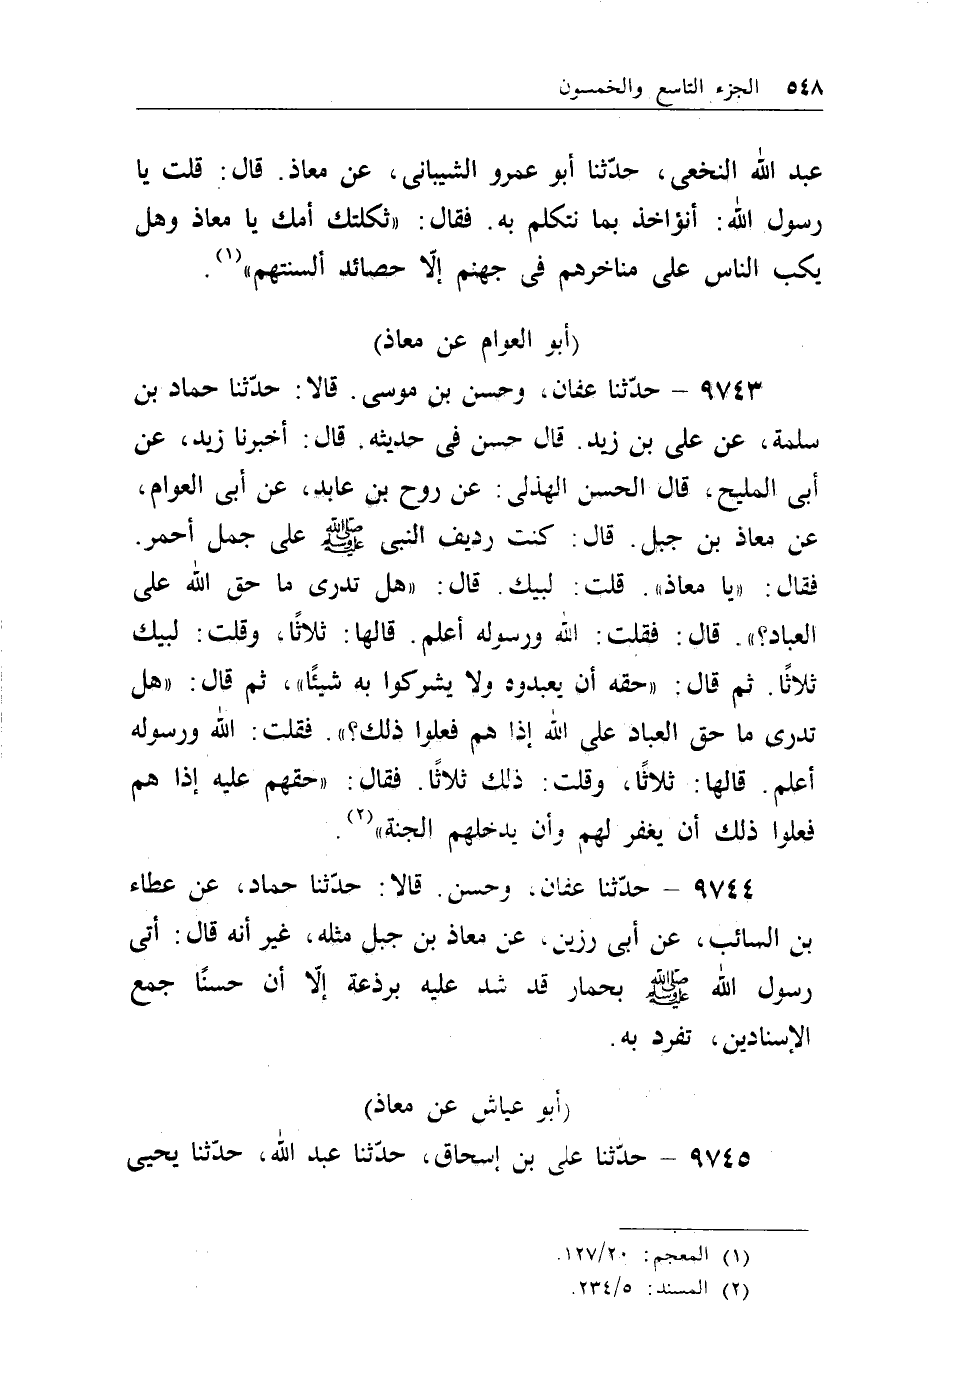 ٥٤٨ الجزء التاسع والخمسون
عبد الله النخعى، حدّثنا أبو عمرو الشيبانى، عن معاذ. قال: قلت يا
رسول الله: أنؤاخذ بما نتكلم به. فقال: «ثكلتك أمك يا معاذ وهل
يكب الناس على مناخرهم فى جهنم إلّا حصائد ألسنتهم»(١).
(أبو العوام عن معاذ)
٩٧٤٣ - حدّثنا عفان، وحسن بن موسى. قالا: حدّثنا حماد بن
سلمة، عن على بن زيد. قال حسن فى حديثه. قال: أخبرنا زيد، عن
أبى المليح، قال الحسن الهذلى: عن روح بن عابد، عن أبى العوام،
عن معاذ بن جبل. قال: كنت رديف النبى ﷺ على جمل أحمر.
فقال: «يا معاذ». قلت: لبيك. قال: «هل تدرى ما حق الله على
العباد؟». قال: فقلت: الله ورسوله أعلم. قالها: ثلاثًا، وقلت: لبيك
ثلاثًا. ثم قال: «حقه أن يعبدوه ولا يشركوا به شيئًا»، ثم قال: «هل
تدرى ما حق العباد على الله إذا هم فعلوا ذلك؟». فقلت: الله ورسوله
أعلم. قالها: ثلاثًا، وقلت: ذلك ثلاثًا. فقال: «حقهم عليه إذا هم
فعلوا ذلك أن يغفر لهم وأن يدخلهم الجنة»(٢).
٩٧٤٤ - حدّثنا عفان، وحسن. قالا: حدّثنا حماد، عن عطاء
بن السائب، عن أبى رزين، عن معاذ بن جبل مثله، غير أنه قال: أتى
رسول الله ﷺ بحمار قد شد عليه برذعة إلّا أن حسنًا جمع
الإسنادين، تفرد به.
(أبو عياش عن معاذ)
٩٧٤٥ - حدّثنا على بن إسحاق، حدّثنا عبد الله، حدّثنا يحيى
(١) المعجم: ١٢٧/٢٠.
(٢) المسند: ٢٣٤/٥.